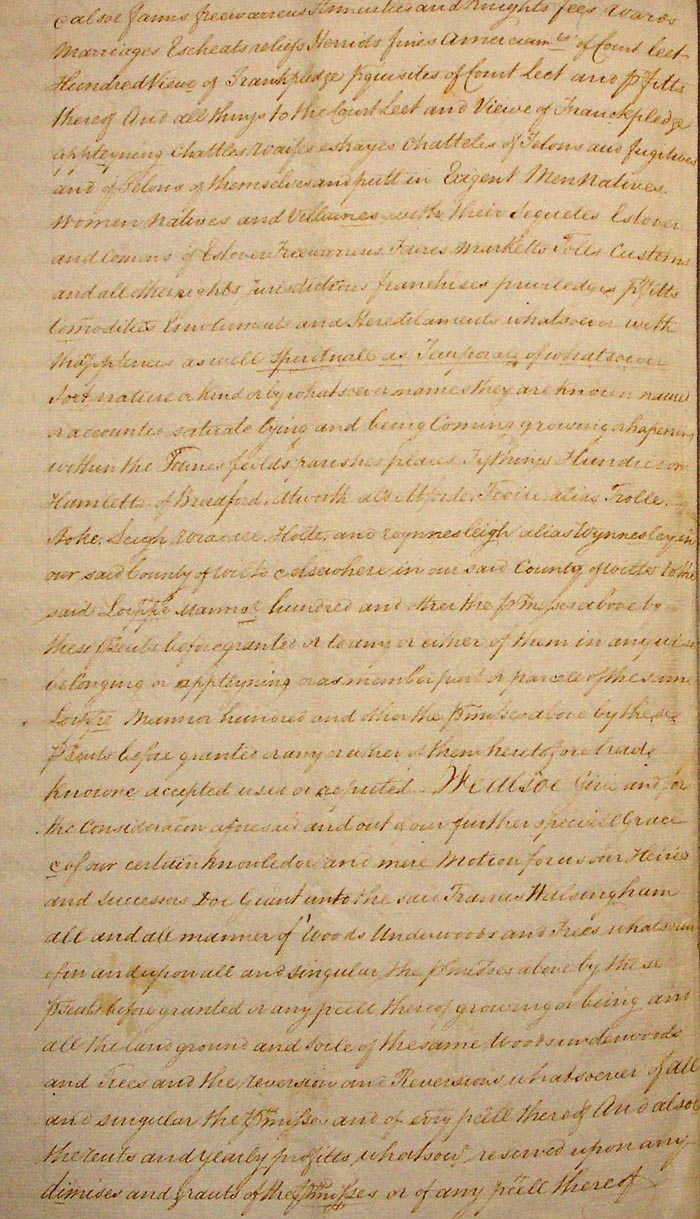 alsoe Farms freewarrens Annuities and Knights fees Wards
Marriages Escheats reliefs Herriots fines Amerciamts of Court leet
Hundred Viewe of Frankpledge pquisites of Court Leet and pfitts
thereof And all things to the Court Leet and Viewe of Franckpledge
appteyning Chattles Waifes estrayes Chatteles of Felons and fugitives
and of Felons of themselves and putt in Exigent Men Natives
Women Natives and Villaines with their Sequeles Estover
and Comons of Estover Freewarrens Faires Marketts Tolls Customs
and all other rights Jurisdictions franchises priviledges pfitts
Comodities Emoluments and Hereditaments whatsoever with
as well Spirituall as Temporall of whatsoever
Sort nature or kind or by whatsoever names they are known named
or accounted scituate lying and being Coming growing or hapening
within the Townes feilds parishes places Tythings Hundred or
Hamletts of Bradford Atworth als Atforde Trowle alias Trolle
Stoke Leigh Wraxall Holte and Wynnesleigh alias Wynnesley in
our said County of Wilts elsewhere in our said County of Wilts to the
said Lordspp Mannor hundred and other the pmises above by
these psents before granted or to any or either of them in any wise
belonging or appteyning or as member part or parcele of the same
Lordspp Mannor hundred and other the pmisses above by these
psents before granted or any or either of them heretofore hads
knowne accepted used or reputed We alsoe Give and for
the Consideracon aforesaid and out of our further speciall Grace
of our certain knowledge and mere Motion for us our Heires
and Successors Doe Grant unto the said Francis Walsingham
all and all manner of Woods Underwoods and Trees whatsoever
in and upon all and singular the pmisses above by these
psents before granted or any pcell thereof growing or being and
all the land ground and soile of the same Woods underwoods
and Trees and the reversion and Reversions whatsoever of all
and singular the pmisses and of evry pcell thereof And alsoe
the rents and yearly profitts whatsoev reserved upon any
dimises and grants of the pmisses or of any pcell thereof